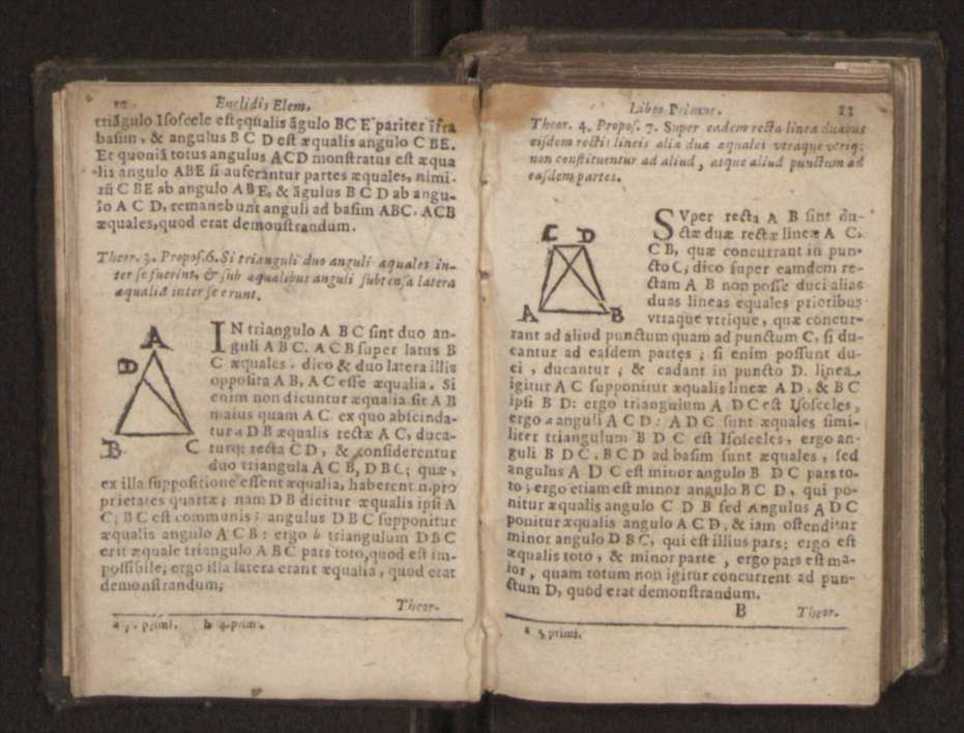 Euclidis Elem.
triãgulo Isoscele est ęqualis ãgulo BC E pariter ifra
basim, & angulus B C D est æqualis angulo C BE.
Et quoniã totus angulus ACD monstratus est æqua
lis angulo ABE si auferantur partes æquales, nimi.
rũ C BE ab angulo ABE, & ãgulus B C D ab angu-
lo A C D, remanebunt anguli ad basim ABC. ACB
æquales, quod erat demonstrandum.
Theor. 3. Propos. 6. Si trianguli duo anguli æquales in-
ter se fuerint, & sub æqualibus anguli subtensa latera
æqualia inter se erunt.
A
D
B
C
IN triangulo A B C sint duo an-
guli A B C. A C B super latus B
C æquales. dico & duo latera illis
opposita A B, A C esse æqualia. Si
enim non dicuntur æqualia sit A B
maius quam A C ex quo abscinda-
tur a D B æqualis rectæ A C, duca-
turq; recta C D, & considerentur
duo triangula A C B, D B C; quæ,
ex illa suppositione essent æqualia, haberent n. pro
prietates quartæ; nam D B dicitur æqualis ipsi A
C; B C est communis; angulus D B C supponitur
æqualis angulo A C B: ergo b triangulum DBC
erit æquale triangulo A B C pars toto, quod est im-
possibile; ergo illa latera erant æqualia, quod erat
demonstrandum;
Theor.
a 3. primi. b 4. prim.
Liber Primus. 11
Theor. 4. Propos. 7. Super eadem recta linea duabus
eisdem rectis lineis aliæ duæ æquales vtraque vtriq;
non constituentur ad aliud, atque aliud punctum ad
easdem partes.
C D
A B
SVper recta A B sint du-
ctæ duæ rectæ lineæ A C.
C B, quæ concurrant in pun-
cto C; dico super eamdem re-
ctam A B non posse duci alias
duas lineas equales prioribus
vtraque vtrique, quæ concur-
rant ad aliud punctum quam ad punctum C, si du-
cantur ad easdem partes; si enim possunt du-
ci, ducantur; & cadant in puncto D. linea
igitur A C supponitur æqualis lineæ A D. & B C
ipsi B D: ergo triangulum A D C est Isosceles,
ergo a anguli A C D: A D C sunt æquales simi-
liter triangulum B D C est Isosceles, ergo an-
guli B D C. B C D ad basim sunt æquales, sed
angulus A D C est minor angulo B D C pars to-
to; ergo etiam est minor angulo B C D, qui po-
nitur æqualis angulo C D B sed angulus A D C
ponitur æqualis angulo A C D, & iam ostenditur
minor angulo D B C, qui est illius pars; ergo est
æqualis toto, & minor parte, ergo pars est ma-
ior, quam totum non igitur concurrent ad pun-
ctum D, quod erat demonstrandum.
B Theor.
a 5. primi.